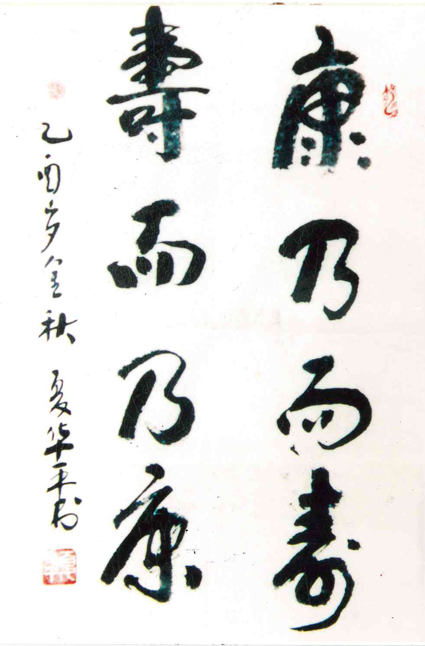 康乃而寿
壽而乃康
乙酉岁金秋 夏华平书